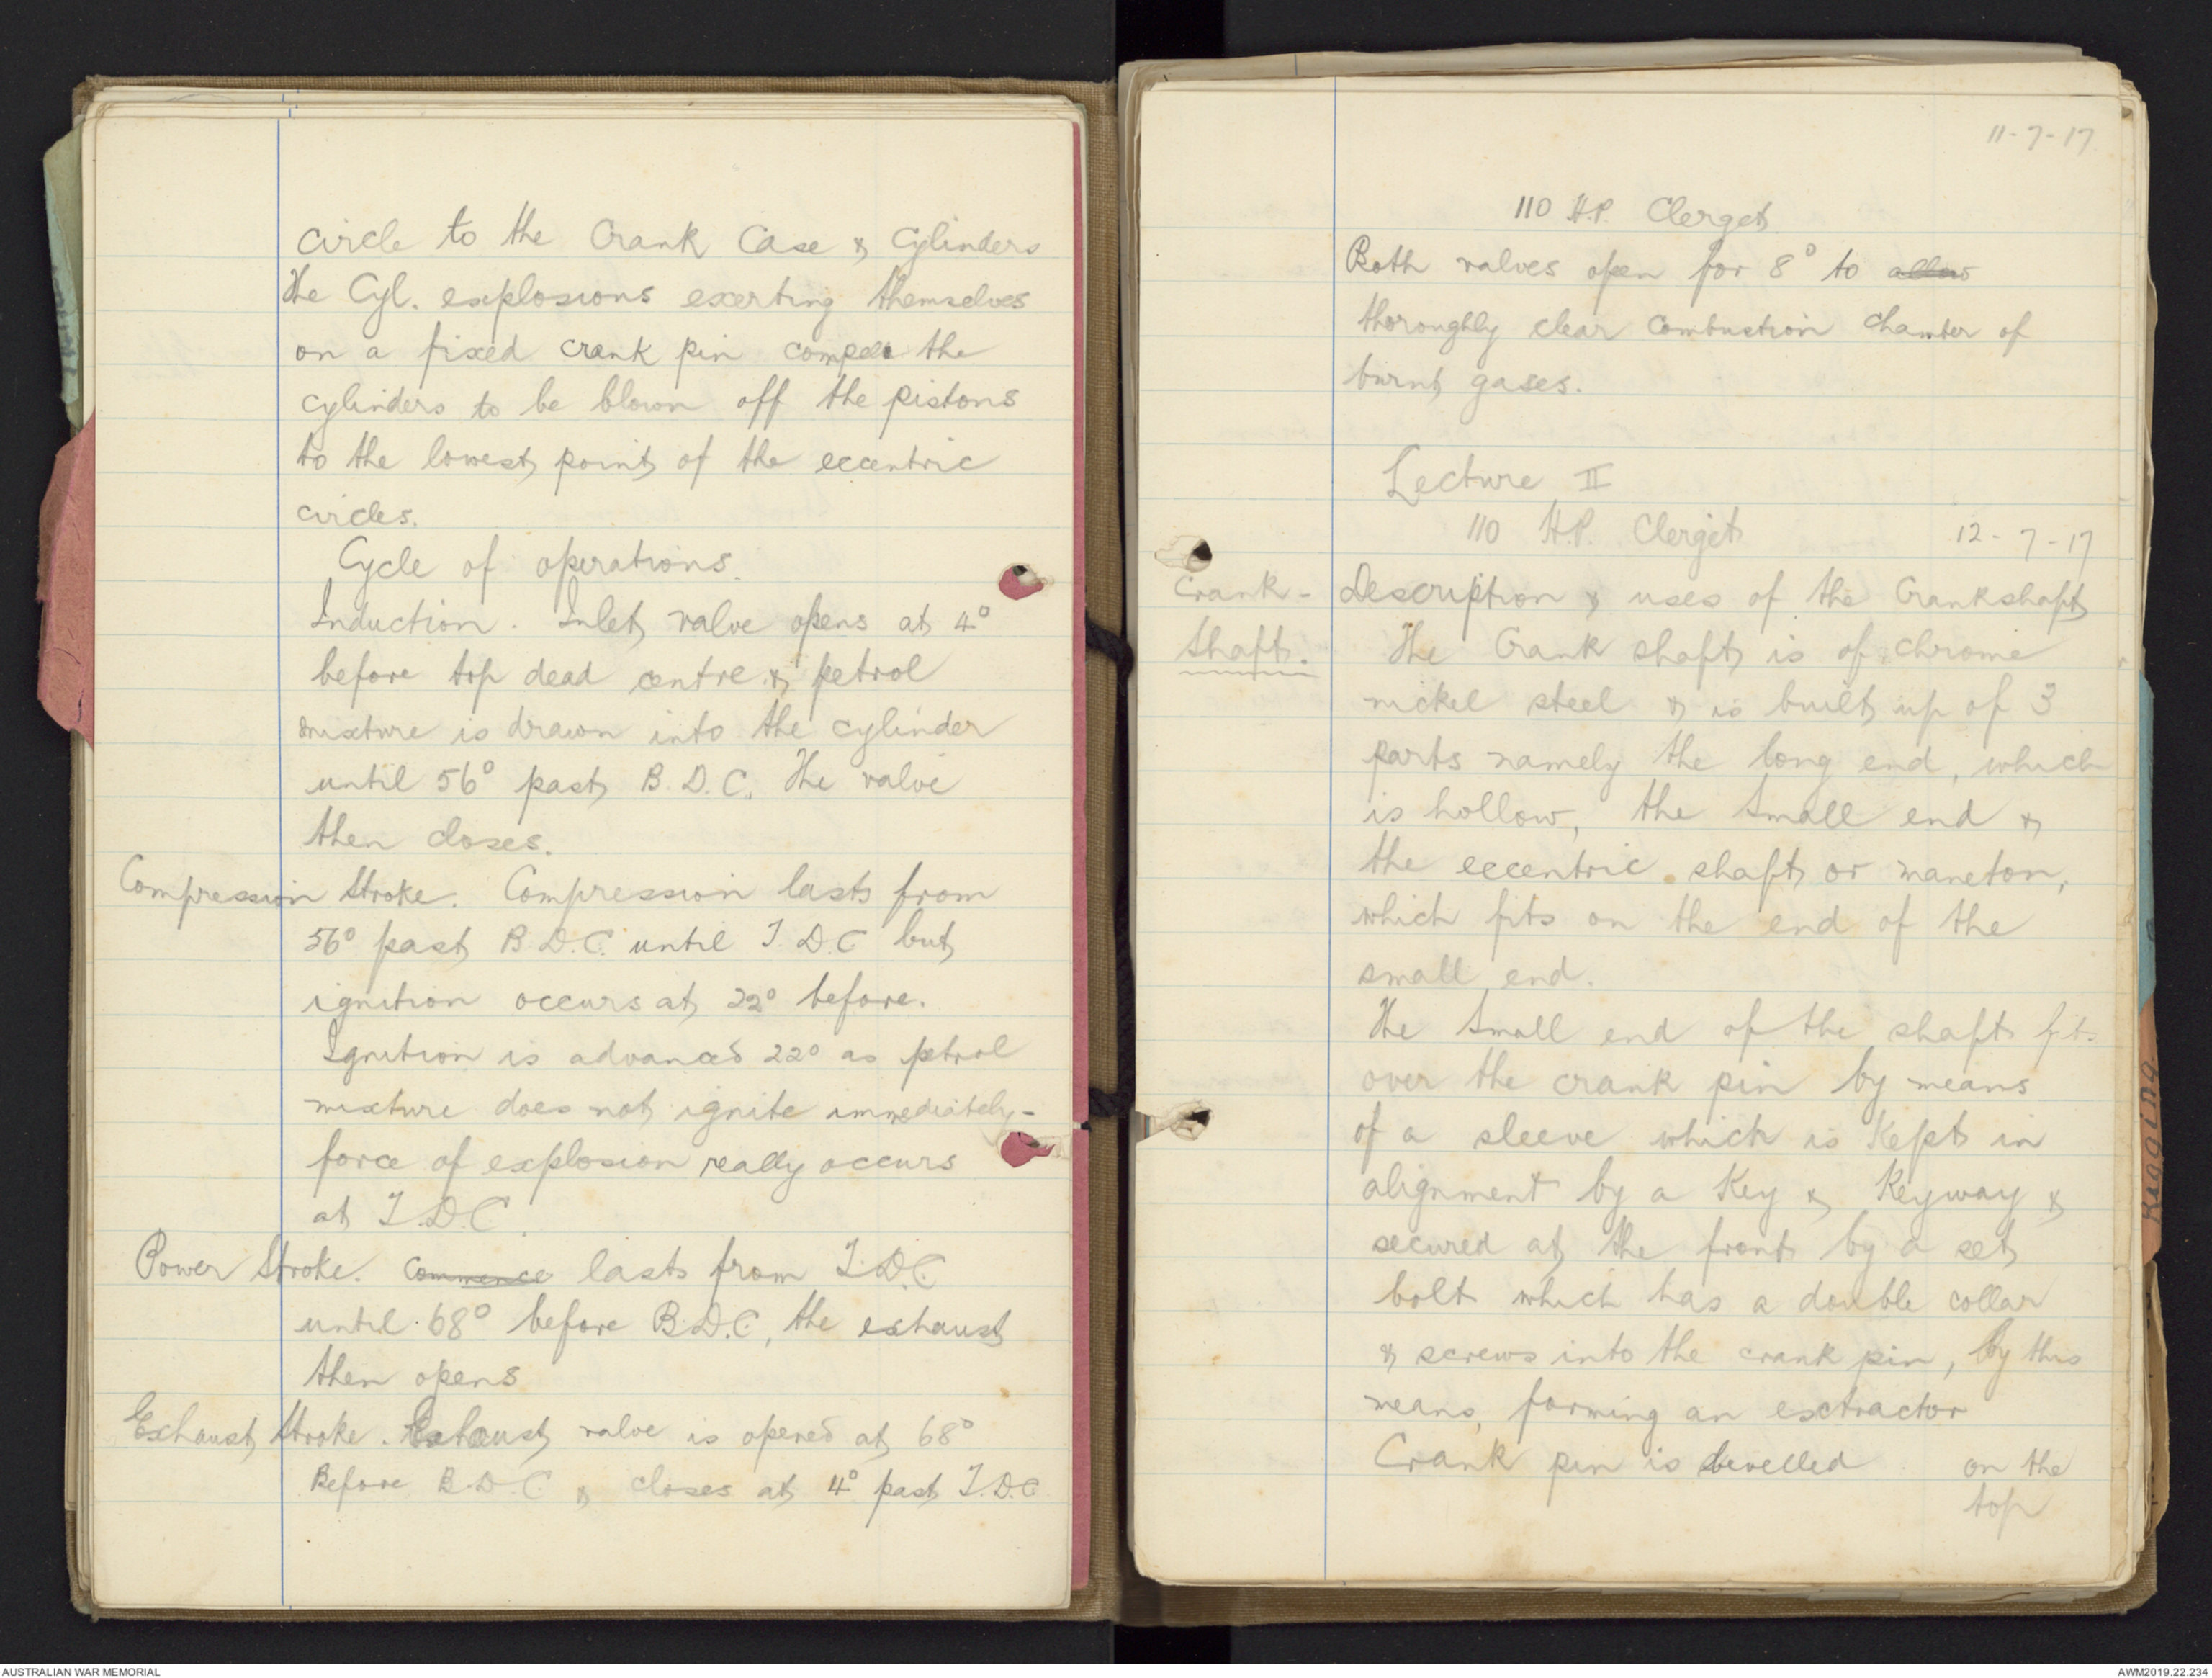 circle to the Crank Case & Cylinders
The Cyl. explosions exerting themselves
on a fixed crank pin compels the
cylinders to be blown off the pistons
to the lowest point of the eccentric
circles.
Cycle of operations.
Induction. Inlet valve opens at 4°
before top dead centre & petrol
mixture is drawn into the cylinder
until 56° past B.D.C. The valve
then closes.
Compression Stroke. Compression lasts from
56° past B.D.C. until T.D.C but
ignition occurs at 22° before.
Ignition is advanced 22° as petrol
mixture does not ignite immediately-
force of explosion really occurs
at T.D.C.
Power Stroke. Commence lasts from T.D.C.
until 68° before B.D.C, the exhaust
then opens
Exhaust Stroke. Exhaust valve is opened at 68°
Before B.D.C & closes at 4° past T.D.C
11-7-17
110 H.P. Clerget
Both valves open for 8° to allow
thoroughly clear combustion chamber of
burnt gases.
Lecture II
110 H.P. Clerget 12-7-17
Crank- Description & uses of the Crankshaft
shaft. The Crank shaft is of chrome
nickel steel & is built up of 3
parts namely the long end, which
is hollow, the small end &
the eccentric shaft or maneton,
which fits on the end of the
small end.
The small end of the shaft fits
over the crank pin by means
of a sleeve which is kept in
alignment by a key & keyway &
secured at the front by a set
bolt which has a double collar
& screws into the crank pin, by this
means, forming an extractor
Crank pin is bevelled on the
top
Rigging
AUSTRALIAN WAR MEMORIAL
AWM2019.22.234